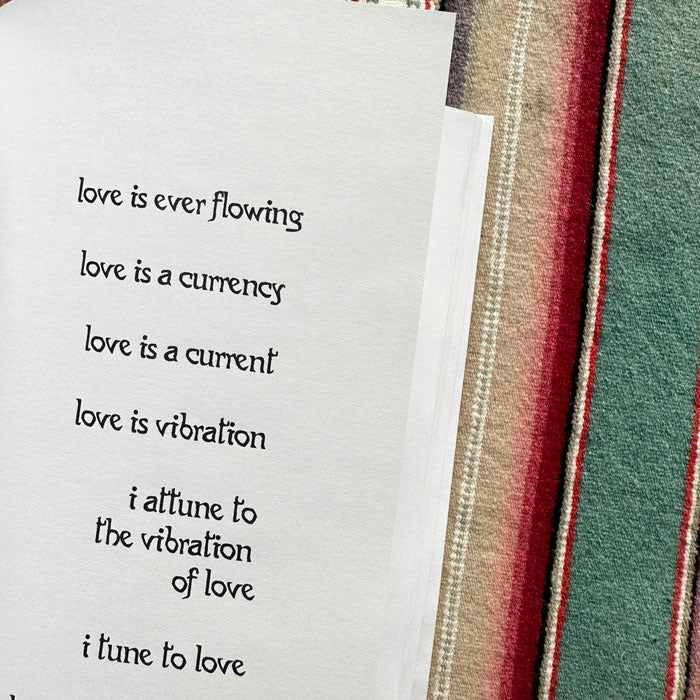 love is ever flowing
love is a currency
love is a current
love is vibration
i attune to
the vibration
of love
i tune to love